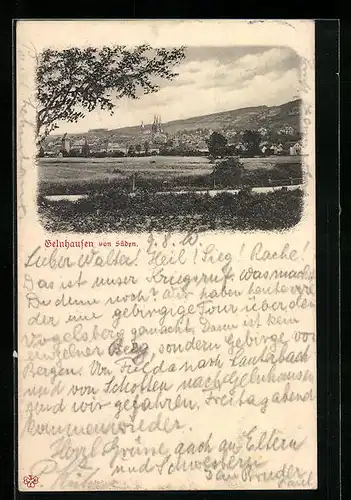 Gelnhausen von Süden.
9.8.
Lieber Walter. Heil! Sieg! Rache!
Das ist unser Kriegsruf. Was machst
Du denn noch? Wir haben heute wie
der eine gebirgige Tour über den
Vogelsberg gemacht. Dann ist kein
einzelner Berg, sondern Gebirge von
Bergen. Von Fulda nach Lauterbach
und von Schotten nach Gelnhausen
sind wir gefahren. Freitag abend
kommen wieder.
Herzl Grüsse auch an Eltern
und Schwestern
Dein Bruder
Paul